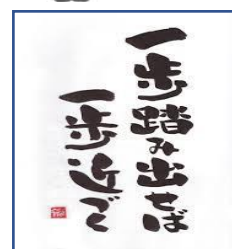 一歩踏み出せば
一歩近づく